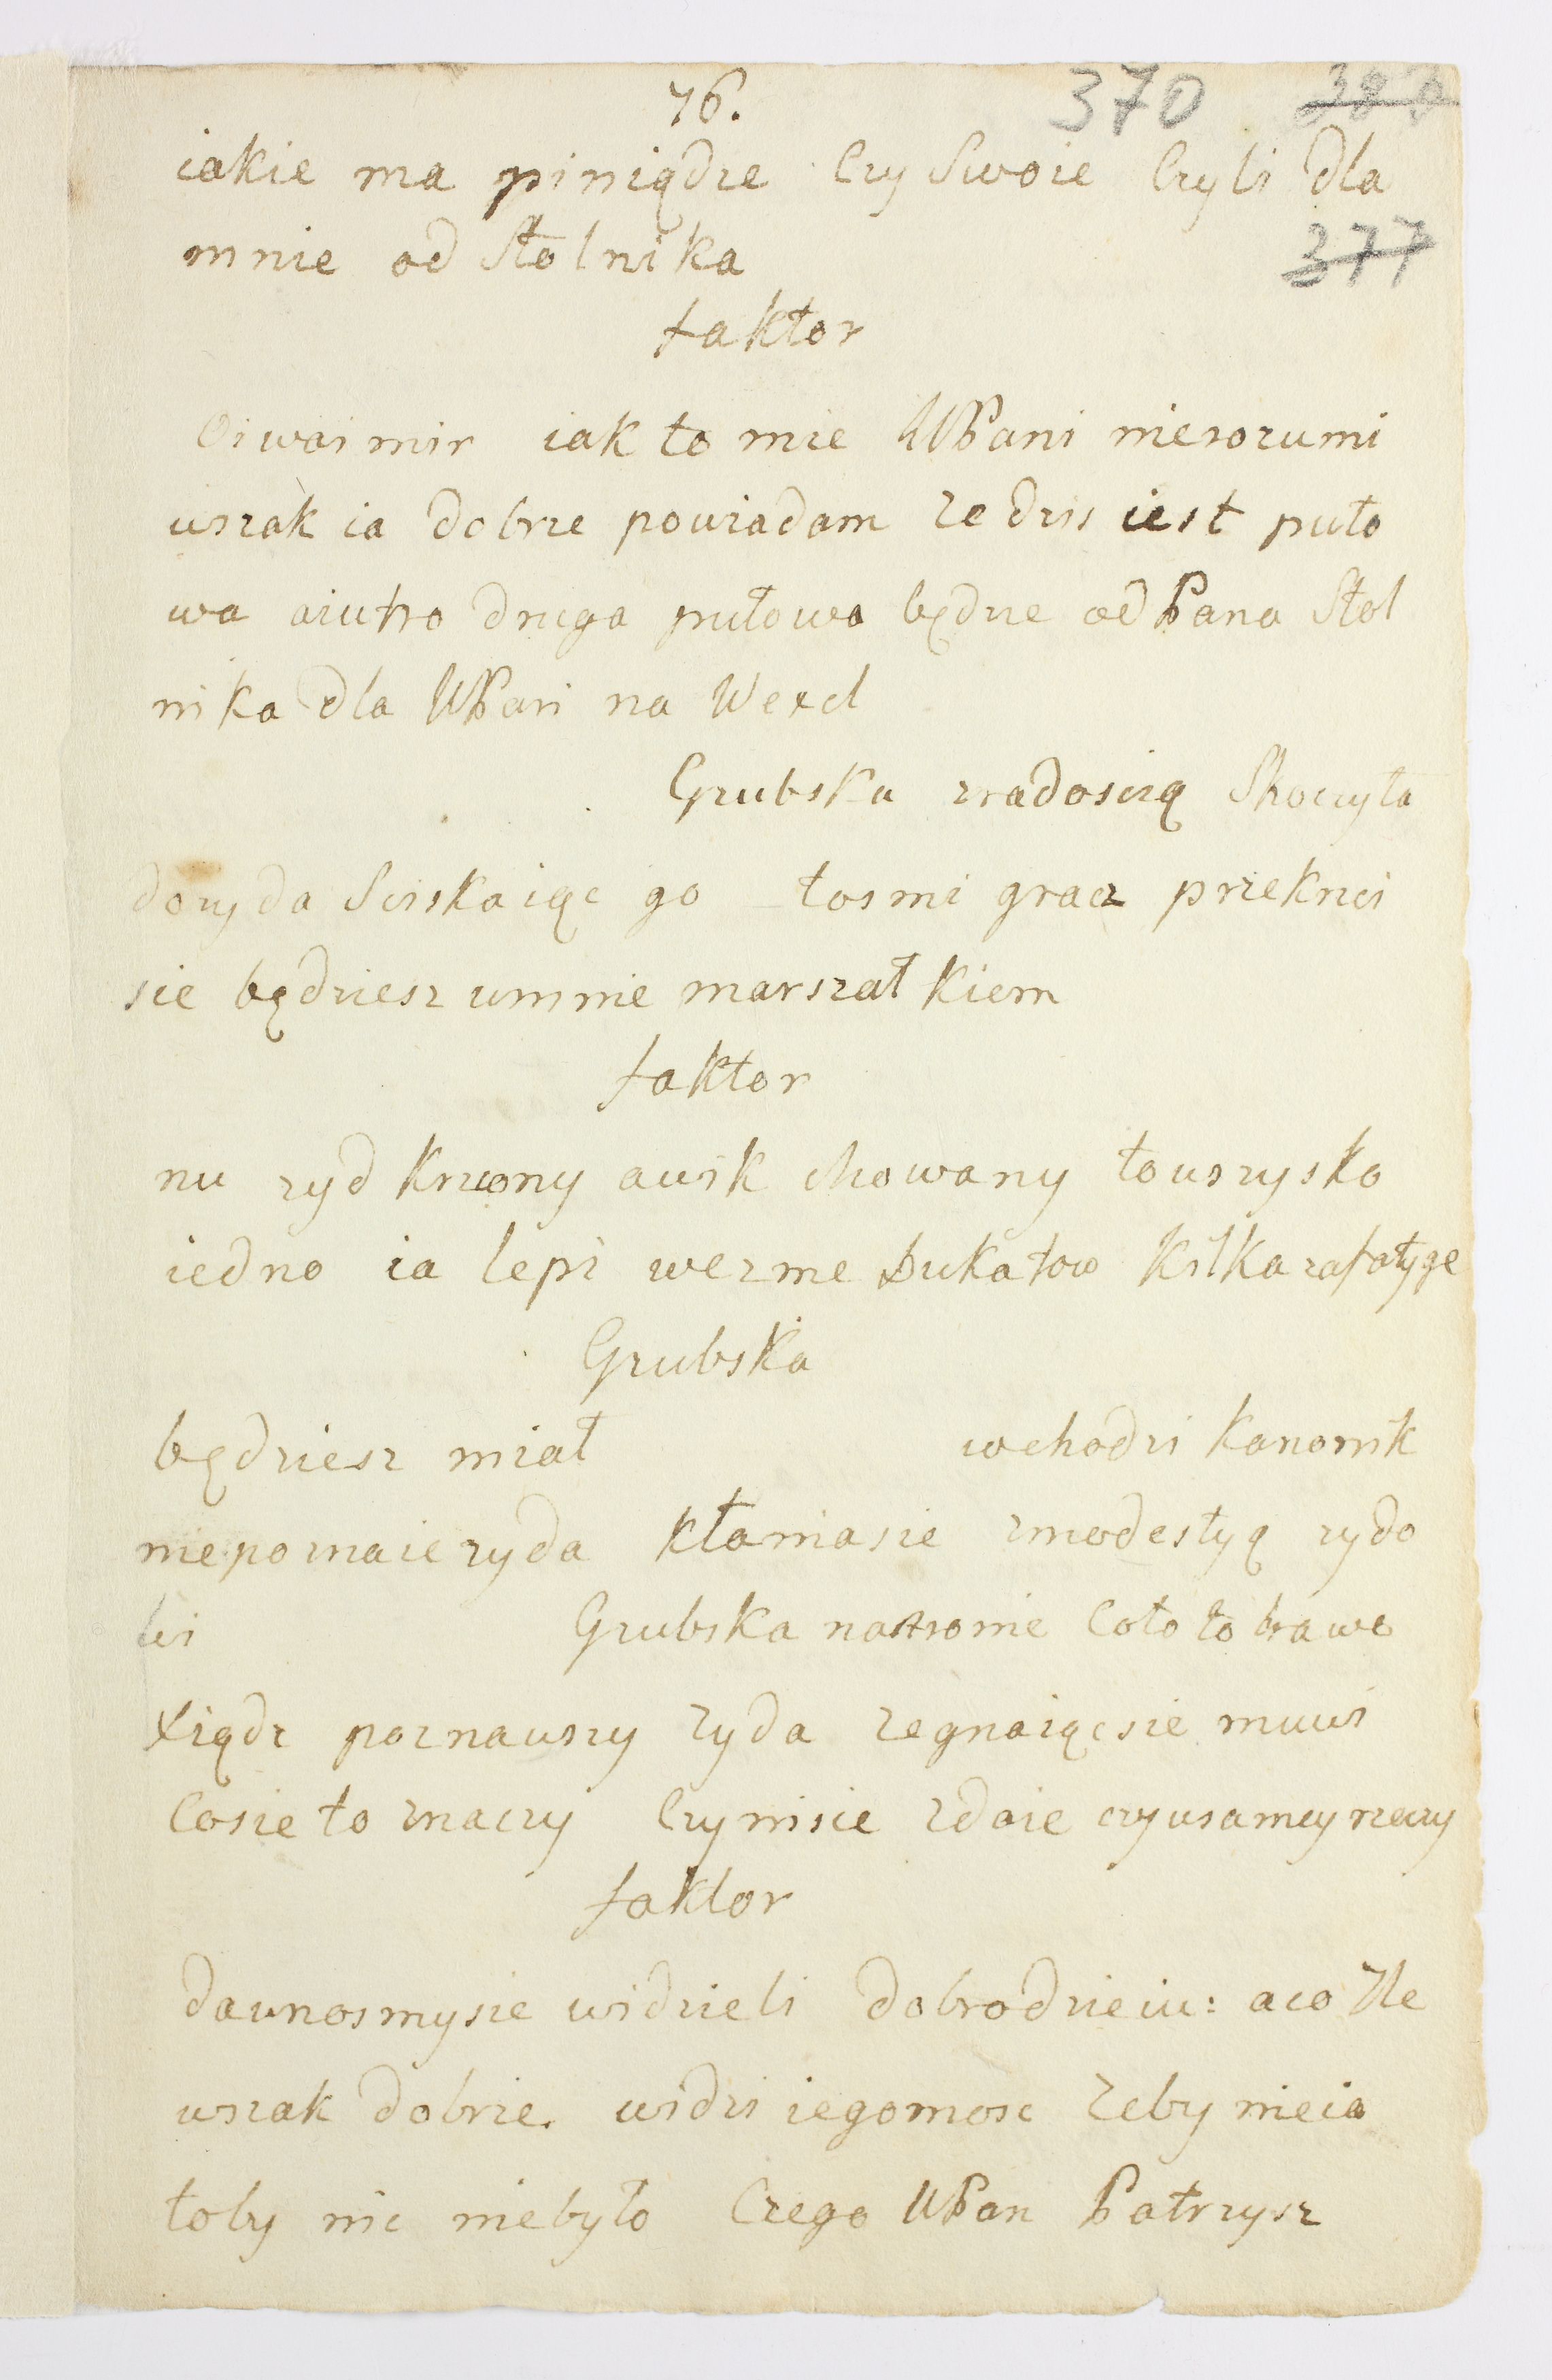 76.
370
383
iakie ma piniądze Czy Swoie Czyli dla
mnie od Stolnika
377
faktor
Oiwaimir iak to mie WPani nierozumi
wszak ia dobrze powiadam ze dzis iest puło
wa aiutro druga pułowa będzie od Pana Stol
nika dla WPani na Wexel
Grubska zradoscią Skoczyła
dozyda Sciskaiąc go tosmi gracz przekrzci
sie będziesz umnie marszałkiem
faktor
nu zyd krzcony awilk chowany towszysko
iedno ia lepi wezme Dukatow kilka zafatyge
Grubska
będziesz miał wchodzi Kanonik
niepoznaie zyda kłaniasie zmodestyą zydo
wi Grubska nastronie Coto to brawo
xiądz poznawszy zyda zegnaiącsie muwi
Cosie to znaczy Czymisie zdaie czywsamey rzeczy
faktor
dawnosmysie widzieli dobrodzieiu: aco Zle
wszak dobrze. widzi iegomosc zeby nieia
toby nic niebyło Czego WPan Patrzysz